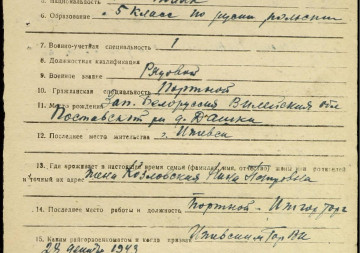 5. Национальность
6. Образование 5 класс по русски польски
7. Военно-учетная специальность 1
8. Должностная квалификация
9. Военное звание Рядовой
10. Гражданская специальность Портной
11. Место рождения Зап. Белоруссия Вилейская обл
Поставский р-н д. Дашки
12. Последнее место жительства г.
13. Где проживает в настоящее время семья (фамилия, имя, отчество) жены или родителей
и точный их адрес Козловская Нина
14. Последнее место работы и должность Портной -
15. Каким райгорвоенкоматом и когда призван
24 декабря 1943